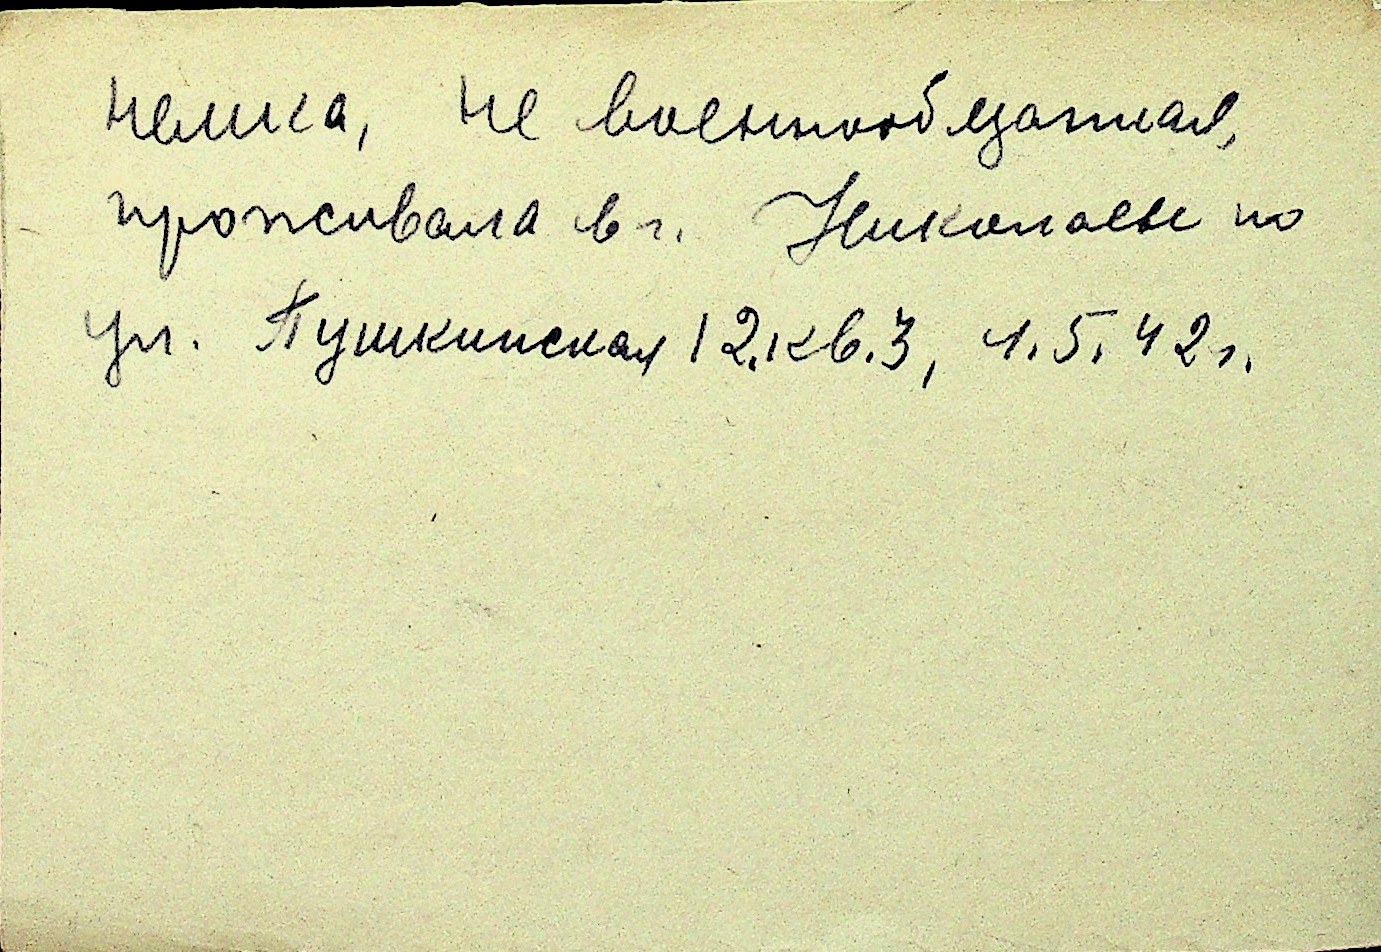 немка, не военнообязанная,
проживала в г. Николаеве по
ул. Пушкинская 12.кв.3, 1.5.42г.